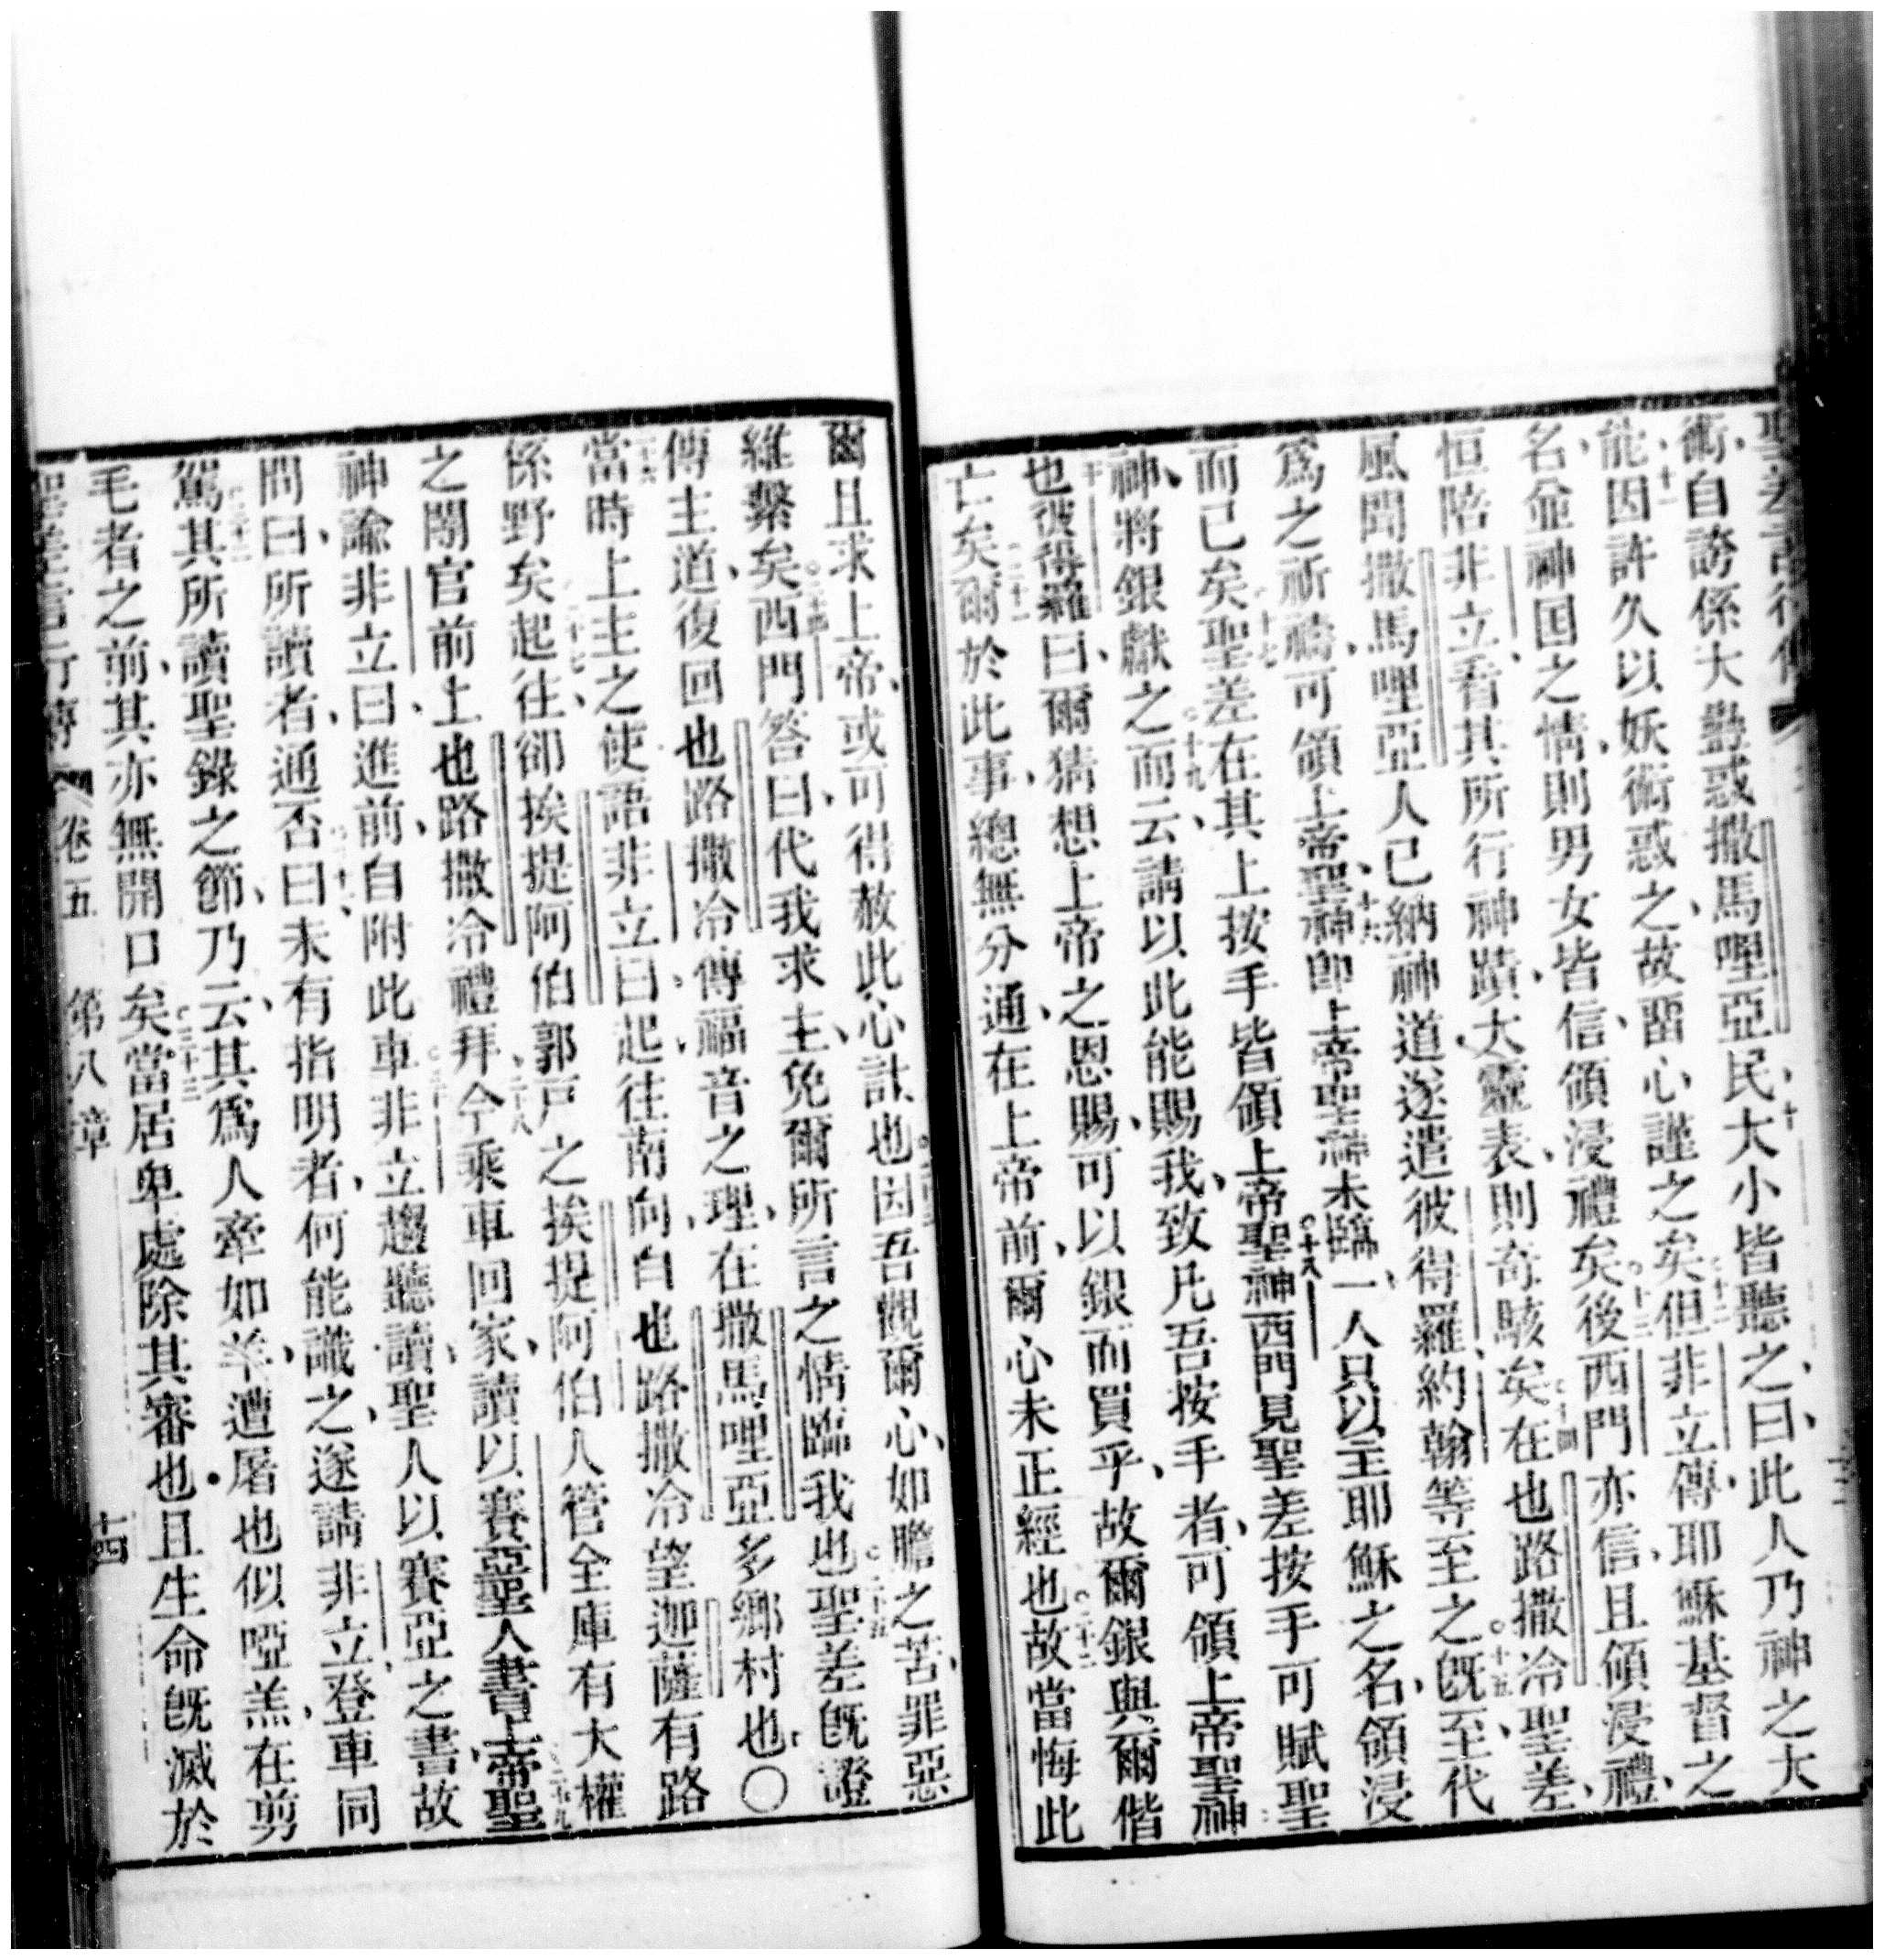 術自誇係大蠱惑撒馬哩亞民大小皆聽之曰此人乃神之大
能因許久以妖術惑之故畱心謹之矣但非立傳耶穌基督之
名並神国之情則男女皆信領浸禮矣後西門亦信且領浸禮
恒陪非立看其所行神蹟大靈表則奇駭矣在也路撒冷聖差
風聞撒馬哩亞人已納神道遂遣彼得羅約翰等至之旣至代
爲之祈禱可領上帝聖神卽上帝聖神未臨一人只以主耶穌之名領浸
而已矣聖差在其上按手皆領上帝聖神西門見聖差按手可賦聖
神將銀獻之而云請以此能賜我致凡吾按手者可領上帝聖神
也彼得羅曰爾猜想上帝之恩賜可以銀而買乎故爾銀與爾偕
亡矣爾於此事總無分通在上帝前爾心未正經也故當悔此
爾且求上帝或可得赦此心計也因吾觀爾心如膽之苦罪惡
維繫矣西門答曰代我求主免爾所言之情臨我也聖差旣證
傳主道復回也路撒冷傳福音之理在撒馬哩亞多鄉村也〇
當時上主之使語非立曰起往南向自也路撒冷望迦薩有路
係野矣起往卻挨提阿伯郭戸之挨提阿伯人管全庫有大權
之閹官前上也路撒冷禮拜今乘車回家讀以賽亞聖人書上帝聖
神諭非立曰進前自附此車非立趨聽讀聖人以賽亞之書故
問曰所讀者通否曰未有指明者何能識之遂請非立登車同
駕其所讀聖錄之節乃云其爲人牽如羊遭屠也似啞羔在剪
毛者之前其亦無開口矣當居卑處除其審也且生命旣滅於
聖差言行傳 卷五 第八章 十四